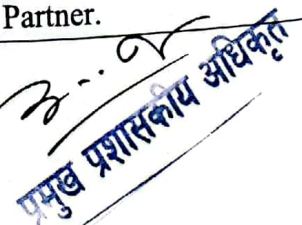 Partner.
प्रमुख प्रशासकीय अधिकृत